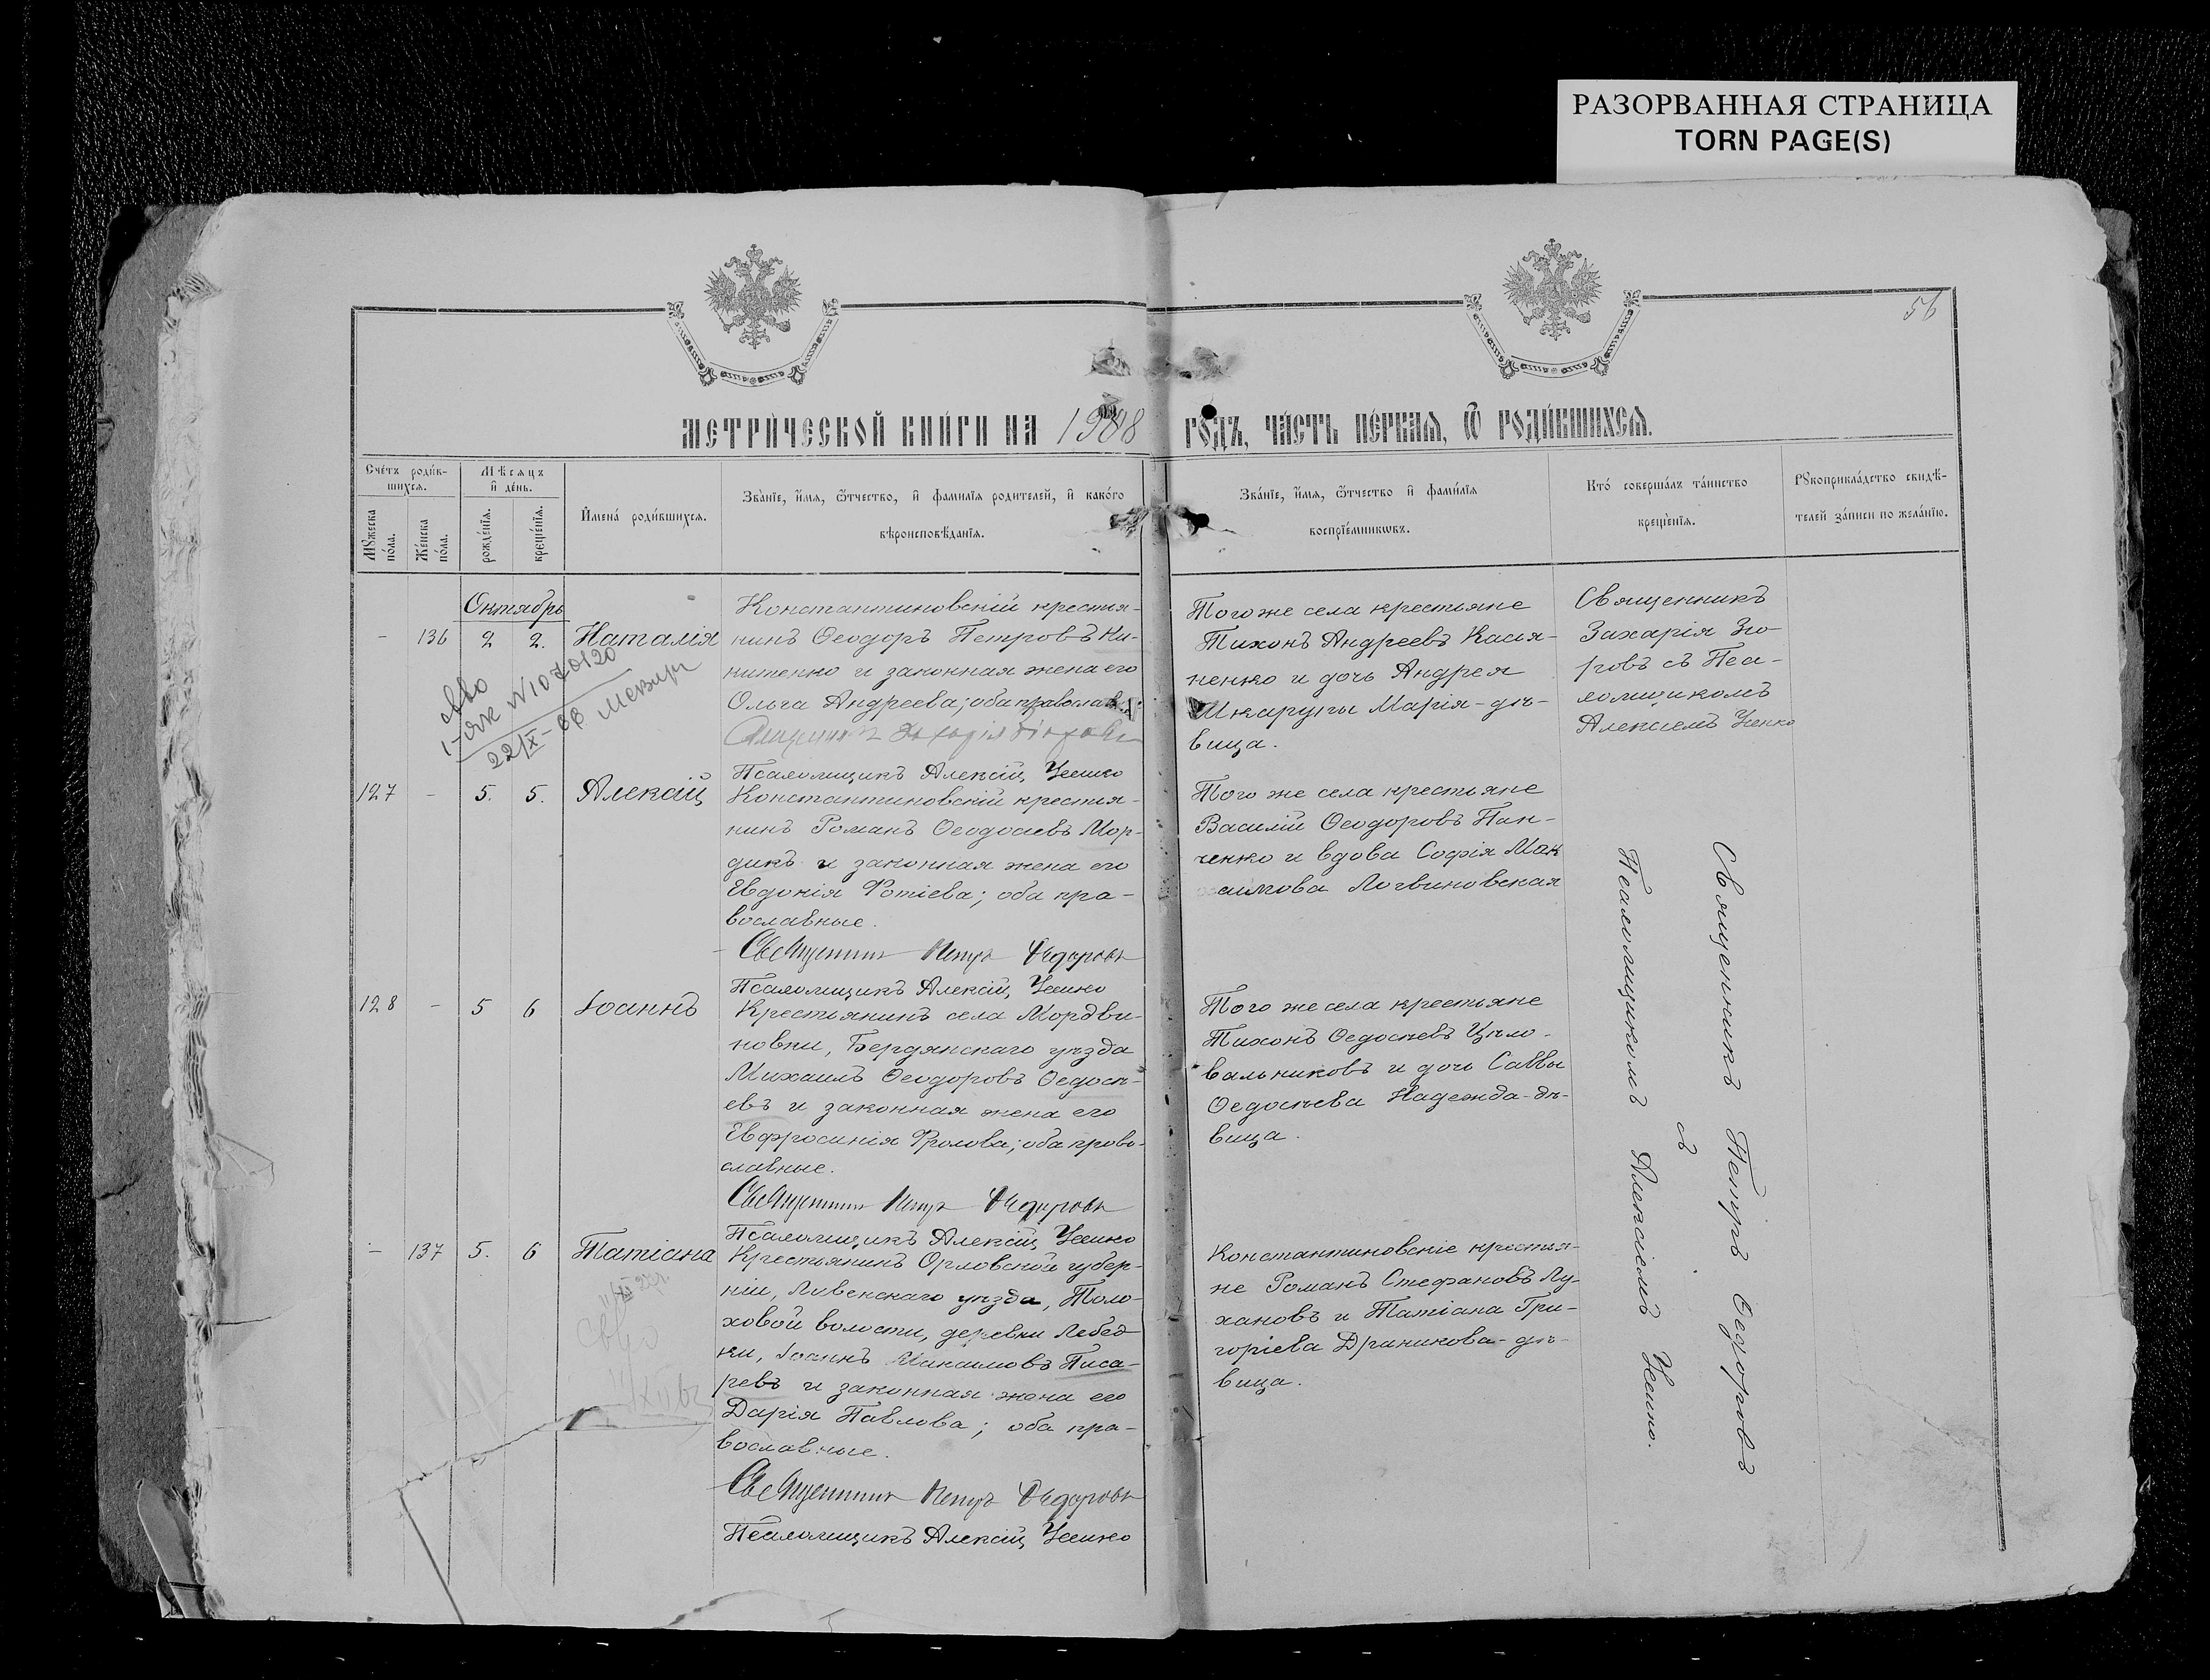 РАЗОРВАННАЯ СТРАНИЦА
TORN PAGE(S)
56
МЕТРИЧЕСКОЙ КНИГИ НА 1908 ГОДЪ, ЧАСТЬ ПЕРВАЯ, Ѿ РОДИВШИХСЯ.
Счетъ родив-
шихся.
Мѣсяцъ
и день.
Мужеска
пола.
Женска
пола.
рожденія.
крещенія.
Имена родившихся.
Званіе, имя, ѿчество, и фамилія родителей, и какого
вѣроисповѣданія.
Званіе, имя, ѿчество и фамилія
воспріемниковъ.
Кто совершалъ таинство
крещенія.
Рукоприкладство свидѣ-
телей записи по желанію.
Октябрь
- 136 2 2. Наталія
Константиновскій крестья-
нинъ Ѳеодоръ Петровъ Ки-
ниченко и законная жена его
Ольга Андреева; оба православн.
Псаломщикъ Алексій Усенко
Того же села крестьяне
Тихонъ Андреевъ Касья-
ненко и дочь Андрея
Шкарупы Марія - дѣ-
вица.
Священникъ
Захарія
съ Пса-
ломщикомъ
Алексіемъ Усенко
1-ЯК N 107020
22/X-
127 - 5. 5. Алексій
Константиновскій крестья-
нинъ Романъ Ѳеодосіевъ Мор-
дикъ и законная жена его
Евдокія Фотіева; оба пра-
вославные.
Священникъ Петръ Ѳедоровъ
Псаломщикъ Алексій Усенко
Того же села крестьяне
Василій Ѳеодоровъ Пан-
ченко и вдова Софія Мак
симова Логвиновская
128 - 5 6 Іоаннъ
Крестьянинъ села Мордви-
новки, Бердянскаго уѣзда
Михаилъ Ѳеодоровъ Ѳедосѣ-
евъ и законная жена его
Евфросинія Фролова; оба право-
славные.
Священникъ Петръ Ѳедоровъ
Псаломщикъ Алексій Усенко
Того же села крестьяне
Тихонъ Ѳедосѣевъ Цѣло-
вальниковъ и дочь Саввы
Ѳедосѣева Надежда - дѣ-
вица.
- 137 5. 6 Татіана
Крестьянинъ Орловской губер-
ніи, Ливенскаго уѣзда, Толо-
ховой волости, деревни Лебед
ки, Іоаннъ Максимовъ Писа-
ревъ и законная жена его
Дарія Павлова; оба пра-
вославные.
Священникъ Петръ Ѳедоровъ
Псаломщикъ Алексій Усенко
Константиновскіе крестья-
не Романъ Стефановъ Лу-
хановъ и Татіана Гри-
горіева Драникова - дѣ-
вица.
Священникъ Петръ Ѳедоровъ
съ
Псаломщикомъ Алексіемъ Усенко.